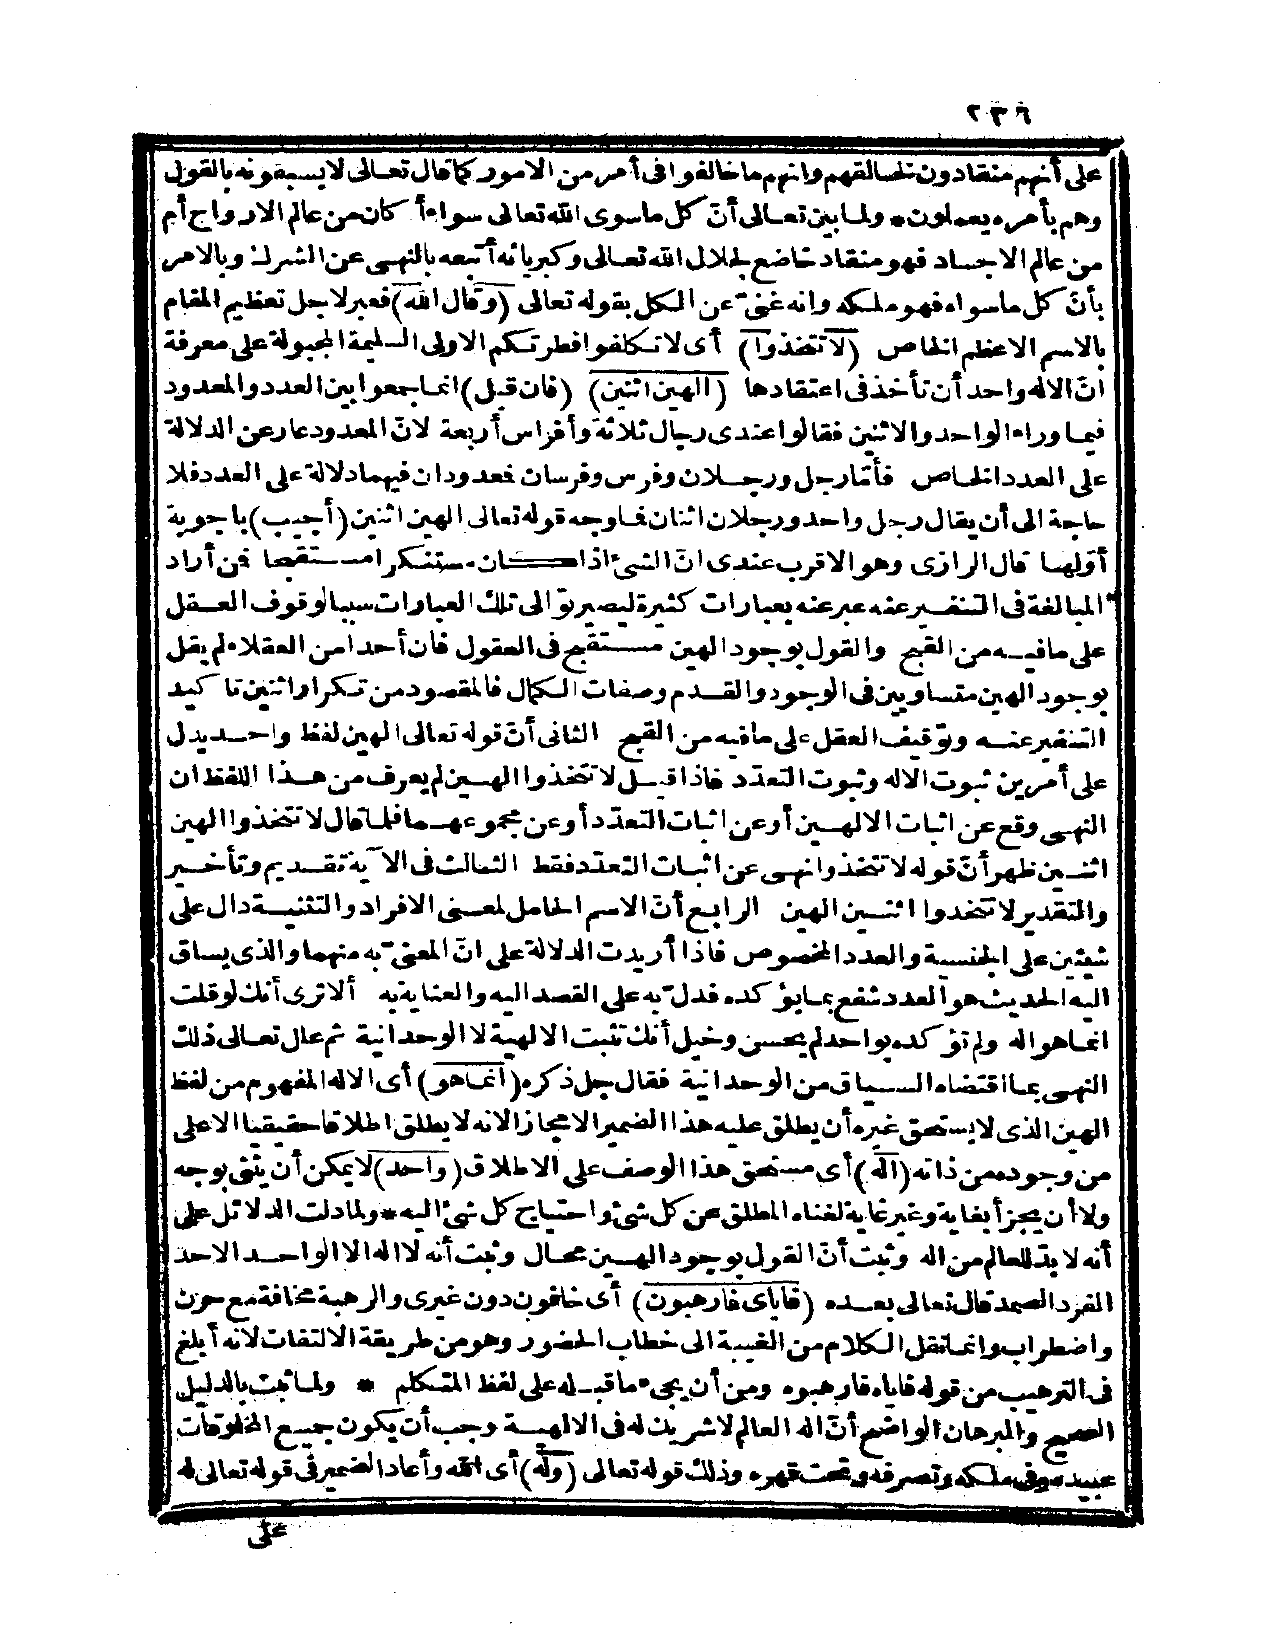 ٢٣٦
على أنهم منقادون لخالقهم وانهم ما خالفوا فى أمر من الامور كما قال تعالى لا يسبقونه بالقول
وهم بأمره يعملون * ولما بين تعالى أنّ كل ما سوى الله تعالى سواء أ كان من عالم الارواح أم
من عالم الاجساد فهو منقاد خاضع لجلال الله تعالى وكبريائه أتبعه بالنهى عن الشرك وبالامر
بأنّ كل ما سواه فهو ملكه وانه غنىّ عن الكل بقوله تعالى (وقال الله) فعبر لاجل تعظيم المقام
بالاسم الاعظم الخاص (لا تتخذوا) أى لا تكلفوا فطرتكم الاولى السليمة المجبولة على معرفة
انّ الاله واحد أن تأخذ فى اعتقادها (الهين اثنين) (فان قيل) انما جمعوا بين العدد والمعدود
فيما وراء الواحد والاثنين فقالوا عندى رجال ثلاثة وأفراس أربعة لانّ المعدود عار عن الدلالة
على العدد الخاص فأمّا رجل ورجلان وفرس وفرسان فمعدودان فيهما دلالة على العدد فلا
حاجة الى أن يقال رجل واحد ورجلان اثنان فما وجه قوله تعالى الهين اثنين (أجيب) باجوبة
أوّلها قال الرازى وهو الاقرب عندى انّ الشئ اذا كان مستنكرا مستقبحا فمن أراد
المبالغة فى التنفير عنه عبر عنه بعبارات كثيرة ليصير توالى تلك العبارات سببا لوقوف العقل
على ما فيه من القبح والقول بوجود الهين مستقبح فى العقول فان أحدا من العقلاء لم يقل
بوجود الهين متساويين فى الوجود والقدم وصفات الكمال فالمقصود من تكرار اثنين تاكيد
التنفير عنه وتوقيف العقل على ما فيه من القبح الثانى أنّ قوله تعالى الهين لفظ واحد يدل
على أمرين ثبوت الاله وثبوت التعدد فاذا قيل لا تتخذوا الهين لم يعرف من هذا اللفظ ان
النهى وقع عن اثبات الالهين أو عن اثبات التعدّد أو عن مجموعهما فلما قال لا تتخذوا الهين
اثنين ظهر أنّ قوله لا تتخذوا نهى عن اثبات التعدّد فقط الثالث فى الآية تقديم وتأخير
والتقدير لا تتخذوا اثنين الهين الرابع أنّ الاسم الحامل لمعنى الافراد والتثنية دال على
شيئين على الجنسية والعدد المخصوص فاذا أريدت الدلالة على انّ المعنىّ به منهما والذى يساق
اليه الحديث هو العدد شفع بما يؤكده فدلّ به على القصد اليه والعناية به ألا ترى أنك لو قلت
انما هو اله ولم تؤكده بواحد لم يحسن وخيل أنك تثبت الالهية لا الوحدانية ثم عال تعالى ذلك
النهى بما اقتضاه السياق من الوحدانية فقال جل ذكره (انما هو) أى الاله المفهوم من لفظ
الهين الذى لا يستحق غيره أن يطلق عليه هذا الضمير الا مجازا لانه لا يطلق اطلاقا حقيقيا الا على
من وجوده من ذاته (اله) أى مستحق هذا الوصف على الاطلاق (واحد) لا يمكن أن يثنى بوجه
ولا أن يجزأ بغاية وغير غاية لغناه المطلق عن كل شئ واحتياج كل شئ اليه * ولما دلت الدلائل على
أنه لا بدّ للعالم من اله وثبت أنّ القول بوجود الهين محال وثبت أنه لا اله الا الواحد الاحد
الفرد الصمد قال تعالى بعده (فاياى فارهبون) أى خافون دون غيرى والرهبة مخافة مع حزن
واضطراب وانما نقل الكلام من الغيبة الى خطاب الحضور وهو من طريقة الالتفات لانه أبلغ
فى الترهيب من قوله فاياه فارهبوه ومن أن يجىء ما قبله على لفظ المتكلم * ولما ثبت بالدليل
الصحيح والبرهان الواضح أنّ اله العالم لا شريك له فى الالهية وجب أن يكون جميع المخلوقات
عبيده وفى ملكه وتصرفه وتحت قهره وذلك قوله تعالى (وله) أى الله وأعاد الضمير فى قوله تعالى له
على